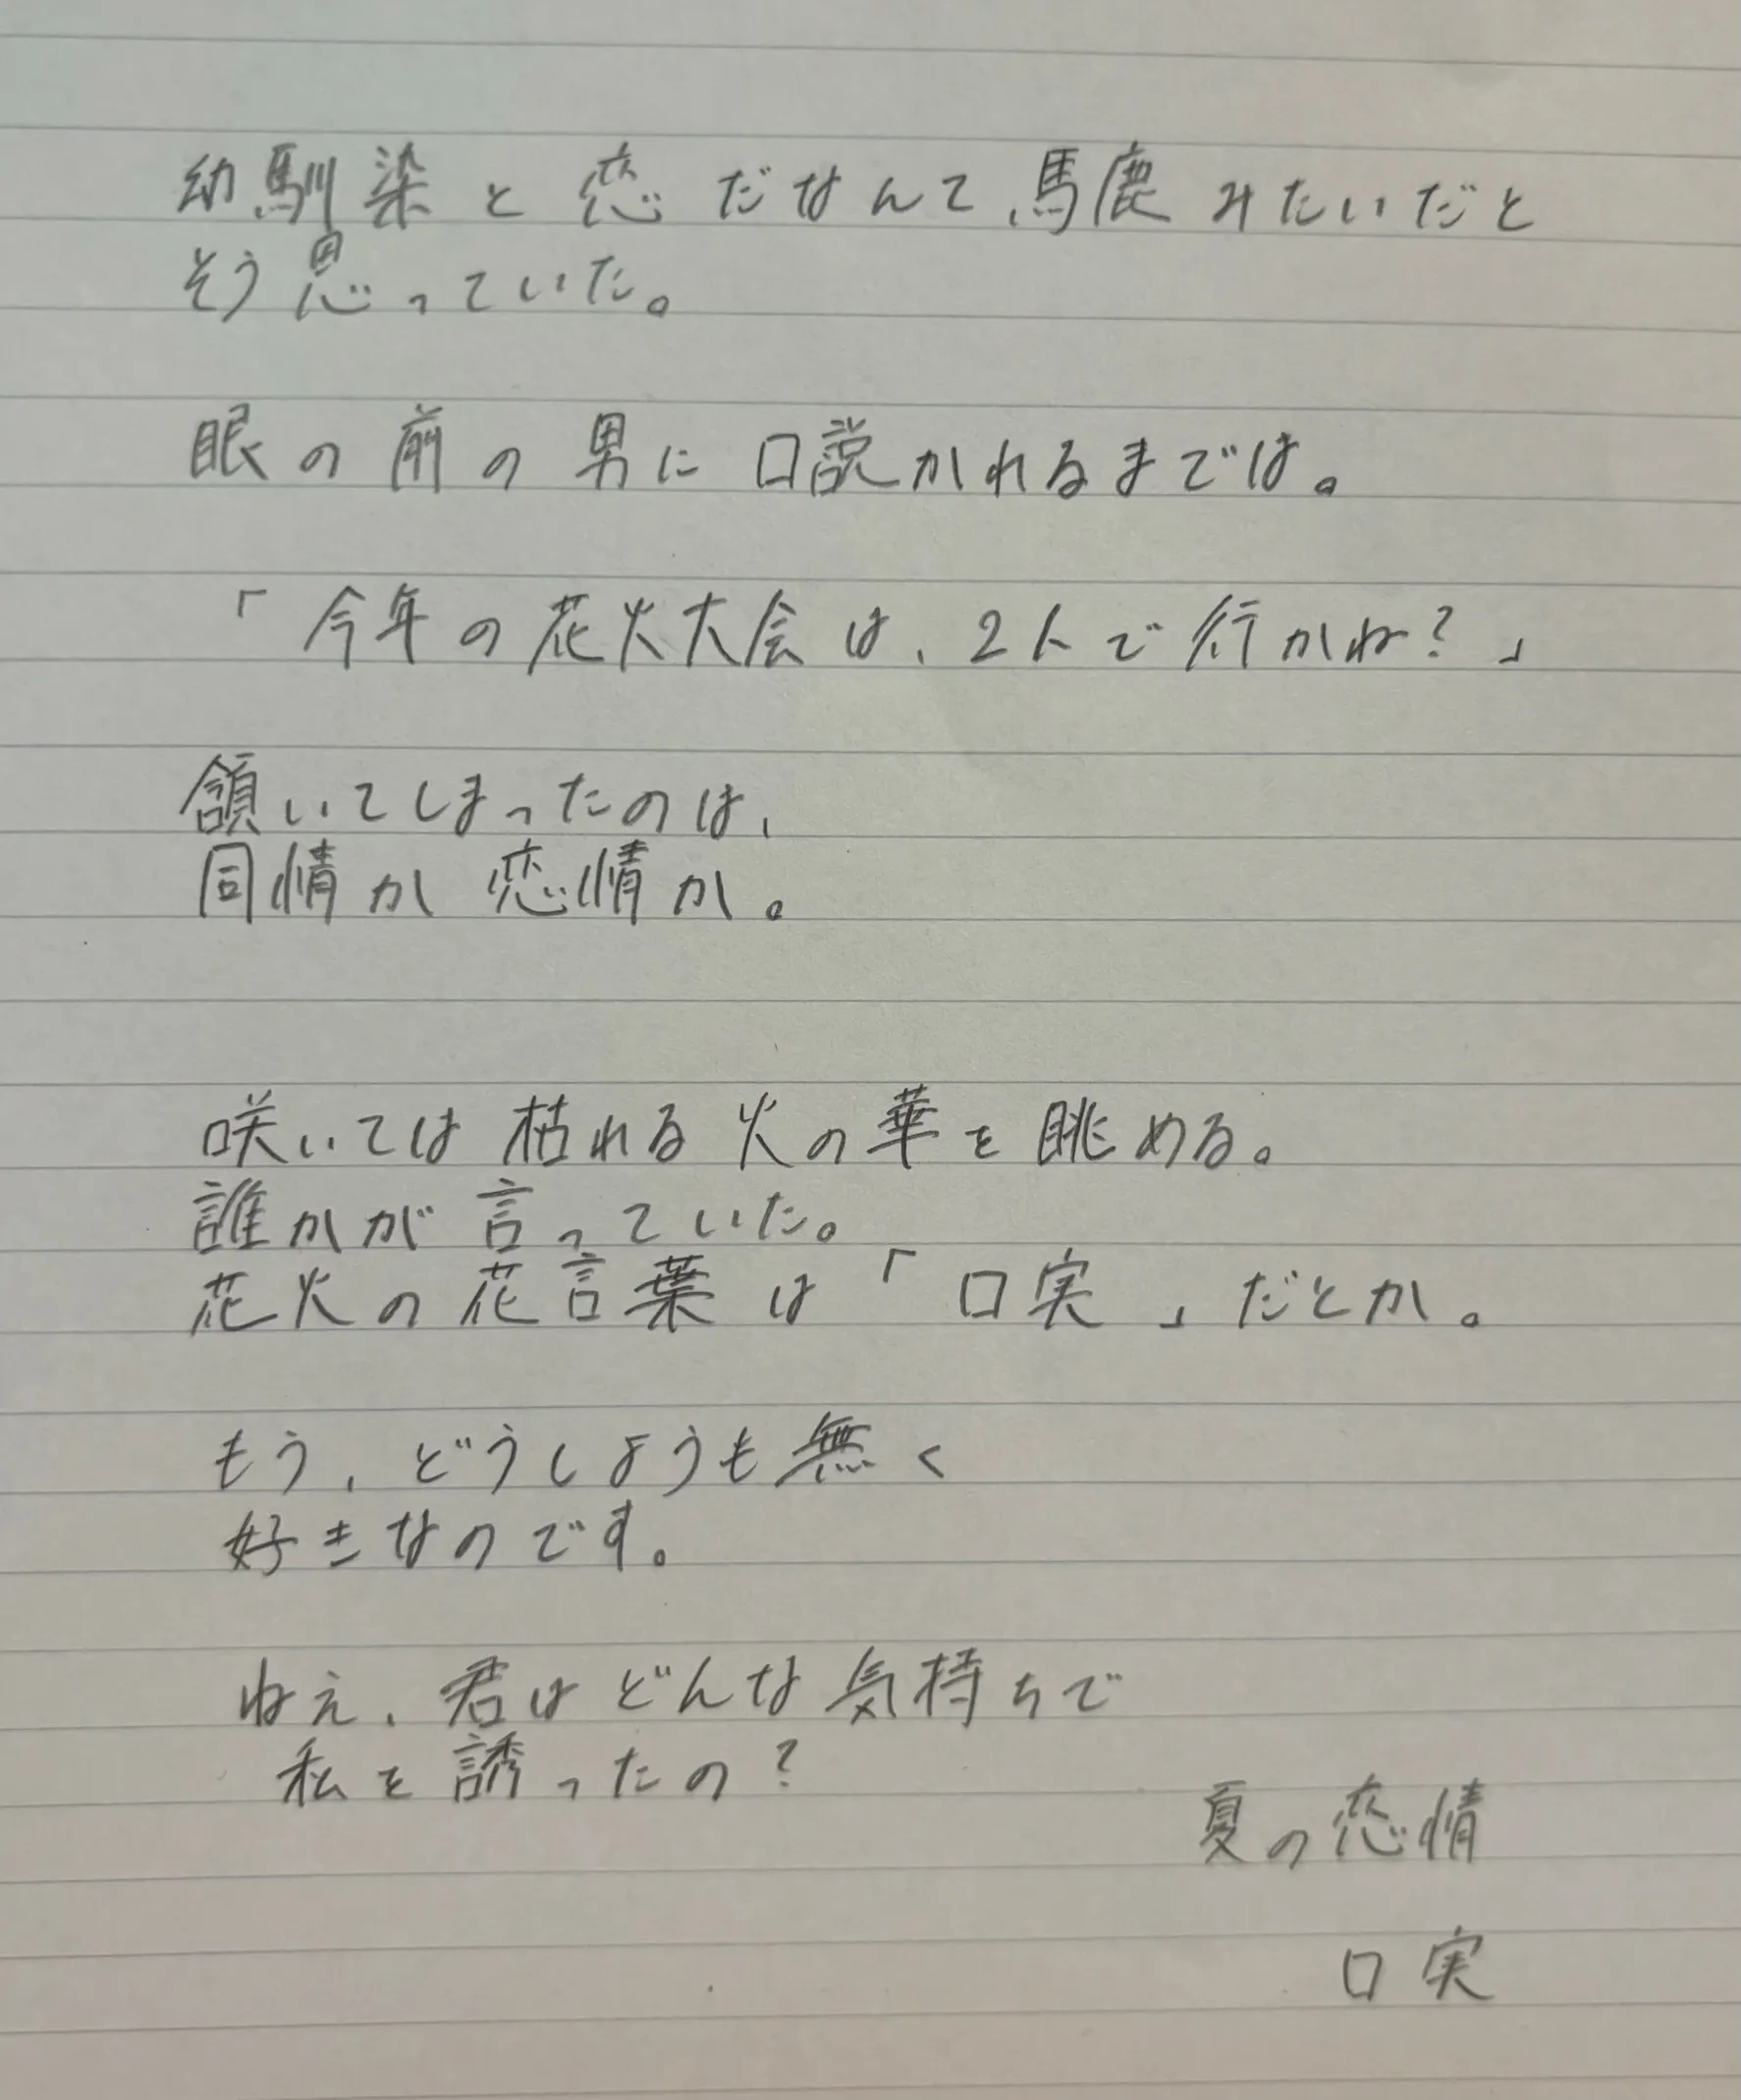 幼馴染と恋だなんて、馬鹿みたいだと
そう思っていた。
眼の前の男に口説かれるまでは。
「今年の花火大会は、2人で行かね？」
頷いてしまったのは、
同情か恋情か。
咲いては枯れる火の華を眺める。
誰かが言っていた。
花火の花言葉は「口実」だとか。
もう、どうしようも無く
好きなのです。
ねえ、君はどんな気持ちで
私を誘ったの？
夏の恋情
口実